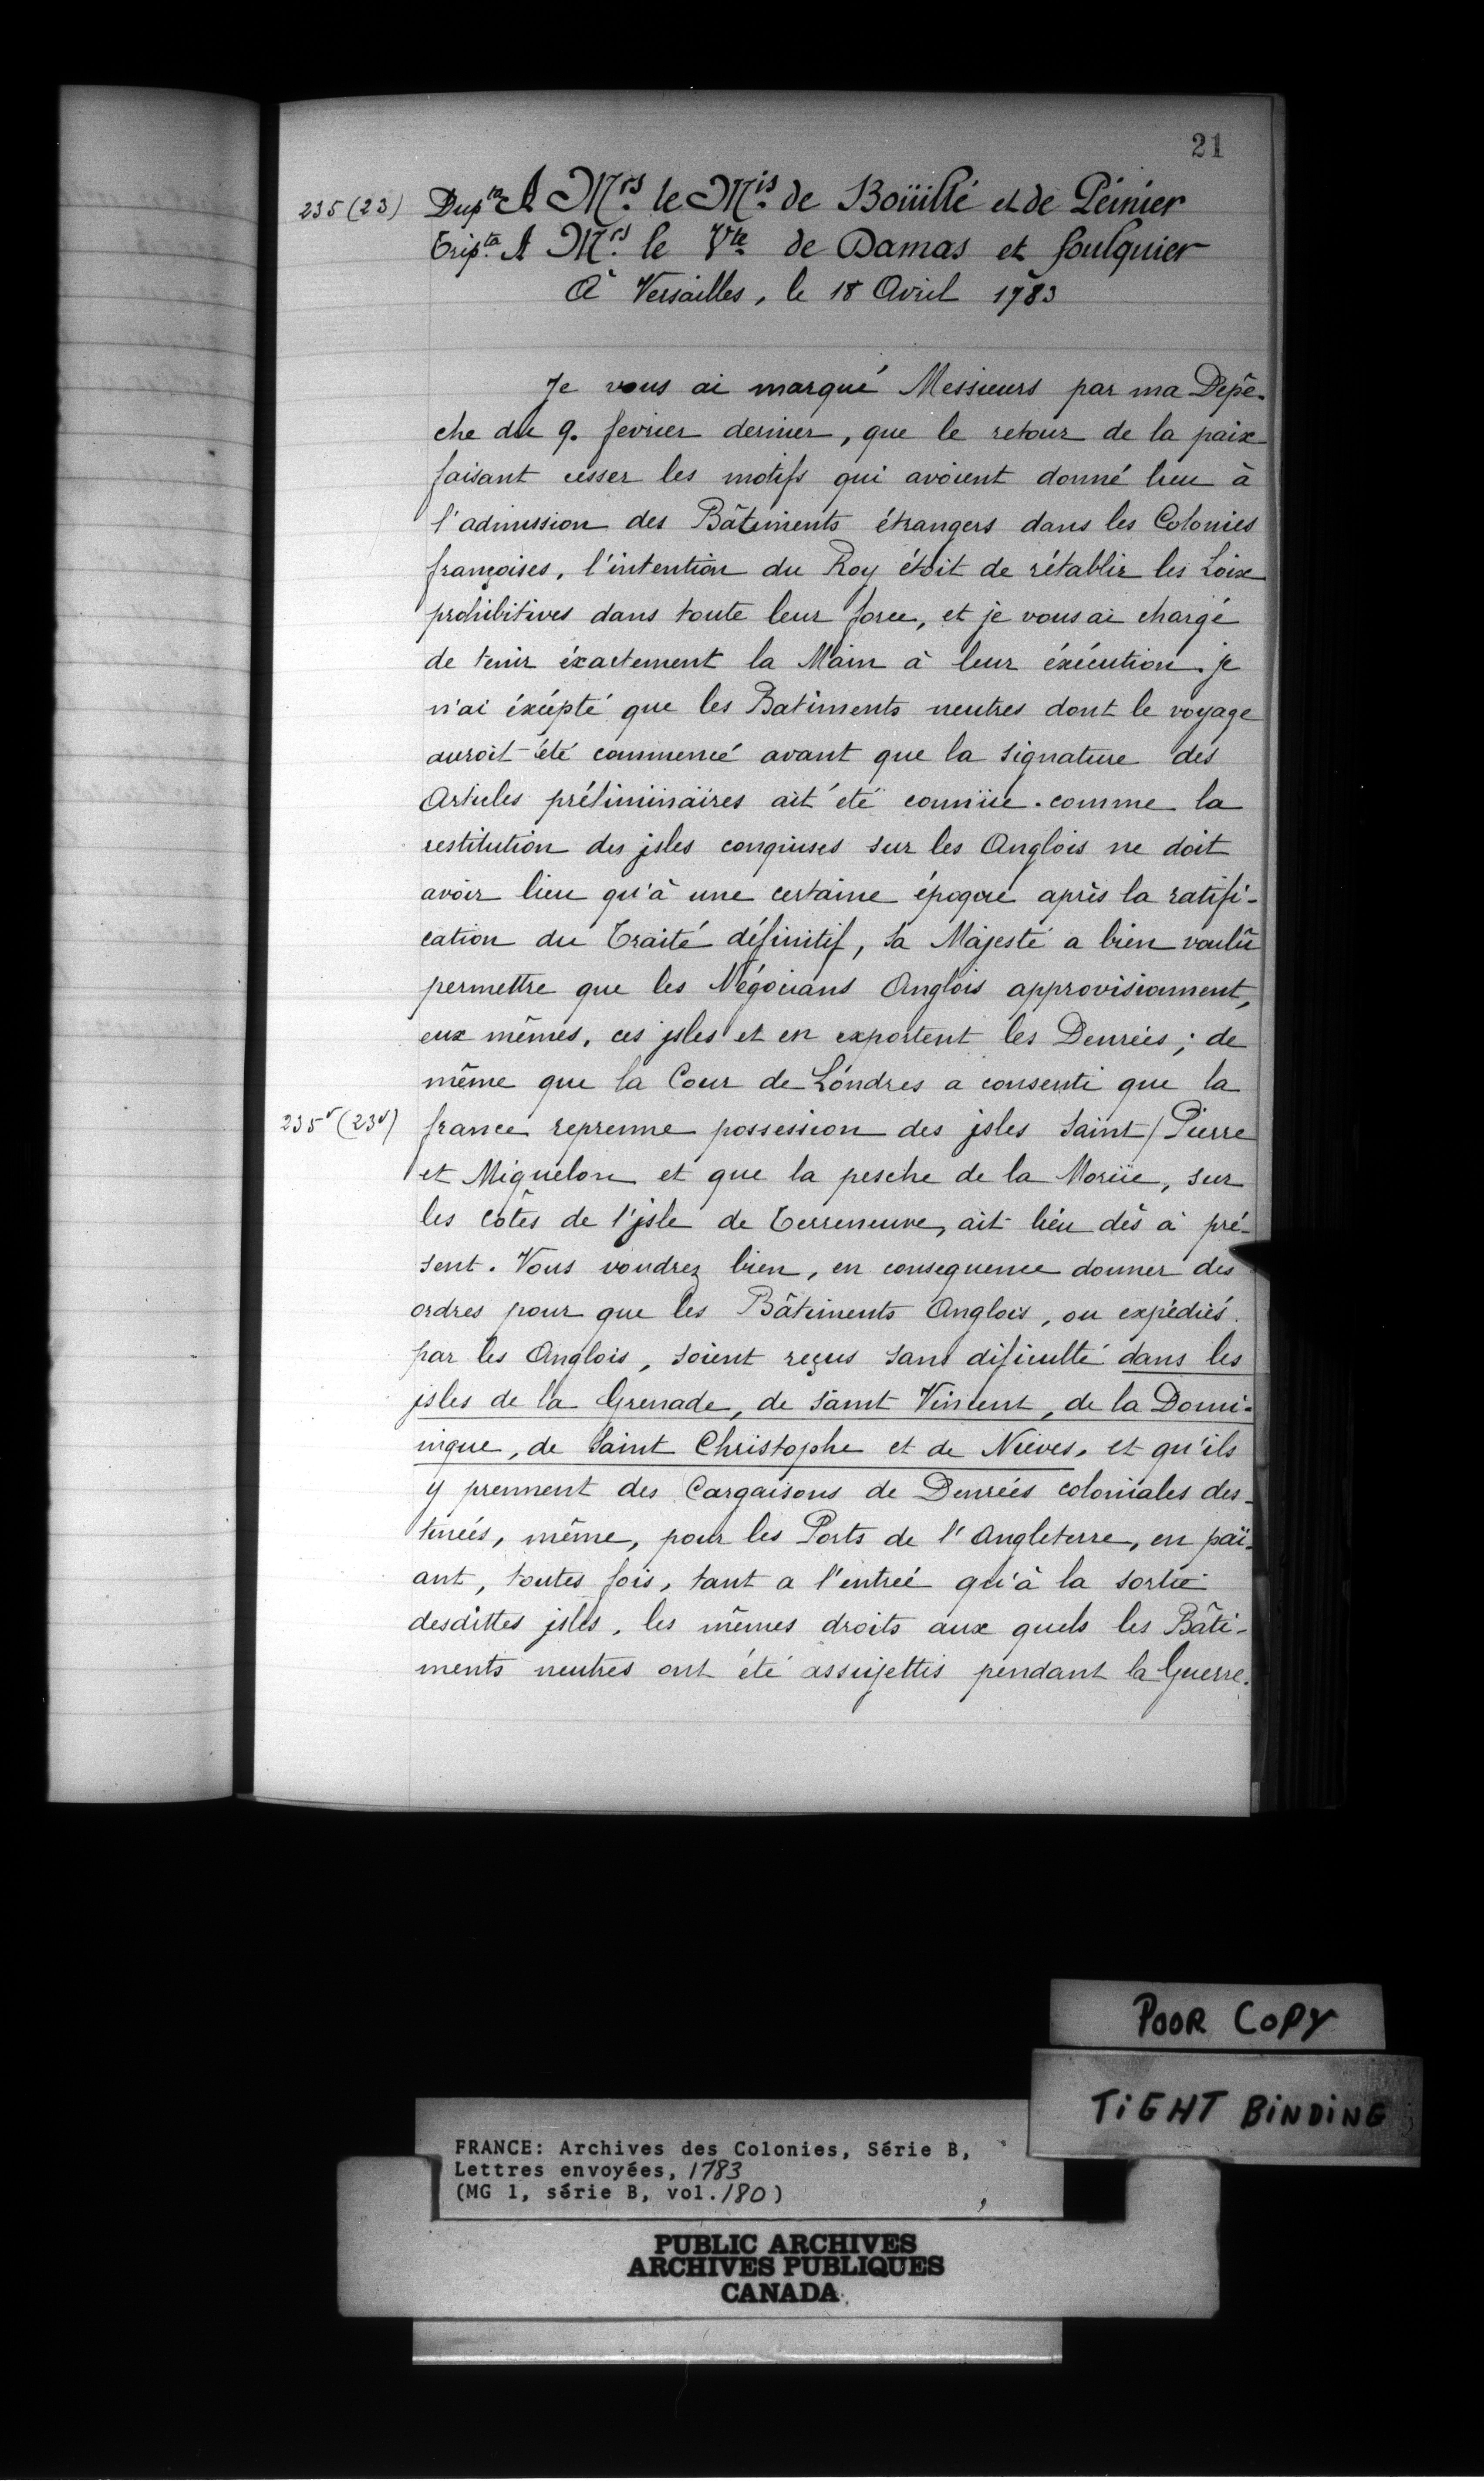 21
235 (23) Dup.ta A Mrs. le Mis. de Boüillé et de Péinier
Trip.ta A Mrs. le Vte de Damas et foulquier
à Versailles, le 18 Avril 1783
Je vous ai marqué Messieurs par ma Dépê-
che du 9. fevrier dernier, que le retour de la paix
faisant cesser les motifs qui avoient donné lieu à
l'admission des Bâtiments étrangers dans les Colonies
françoises, l'intention du Roy étoit de rétablir les Loix
prohibitives dans toute leur force, et je vous ai chargé
de tenir éxactement la Main à leur éxécution. je
n'ai éxcépté que les Batiments neutres dont le voyage
auroit été commencé avant que la signature des
Articles préliminaires ait été connüe. comme la
restitution des jsles conquises sur les Anglois ne doit
avoir lieu qu'à une certaine époque après la ratifi-
cation du Traité définitif, sa Majesté a bien voulû
permettre que les Négocians Anglois approvisionnent,
eux mêmes, ces jsles et en exportent les Denrées; de
même que la Cour de Londres a consenti que la
235v (23v) france reprenne possession des jsles Saint / Pierre
et Miquelon et que la pesche de la Morüe, sur
les côtes de l'jsle de Terreneuve, ait lieu dès à pré-
sent. Vous voudrez bien, en consequence donner des
ordres pour que les Bâtiments Anglois, ou expédiés
par les Anglois, soient reçus sans dificulté dans les
jsles de la Grenade, de saint Vincent, de la Domi-
nique, de Saint Christophe et de Nieves, et qu'ils
y prennent des Cargaisons de Denrées coloniales des-
tinées, même, pour les Ports de l'Angleterre, en paï-
ant, toutes fois, tant a l'entrée qu'à la sortie
desdittes jsles, les mêmes droits aux quels les Bâti-
ments neutres ont été assujettis pendant la Guerre.
POOR COPY
TIGHT BINDING
FRANCE: Archives des Colonies, Série B,
Lettres envoyées, 1783
(MG 1, série B, vol. 180)
PUBLIC ARCHIVES
ARCHIVES PUBLIQUES
CANADA